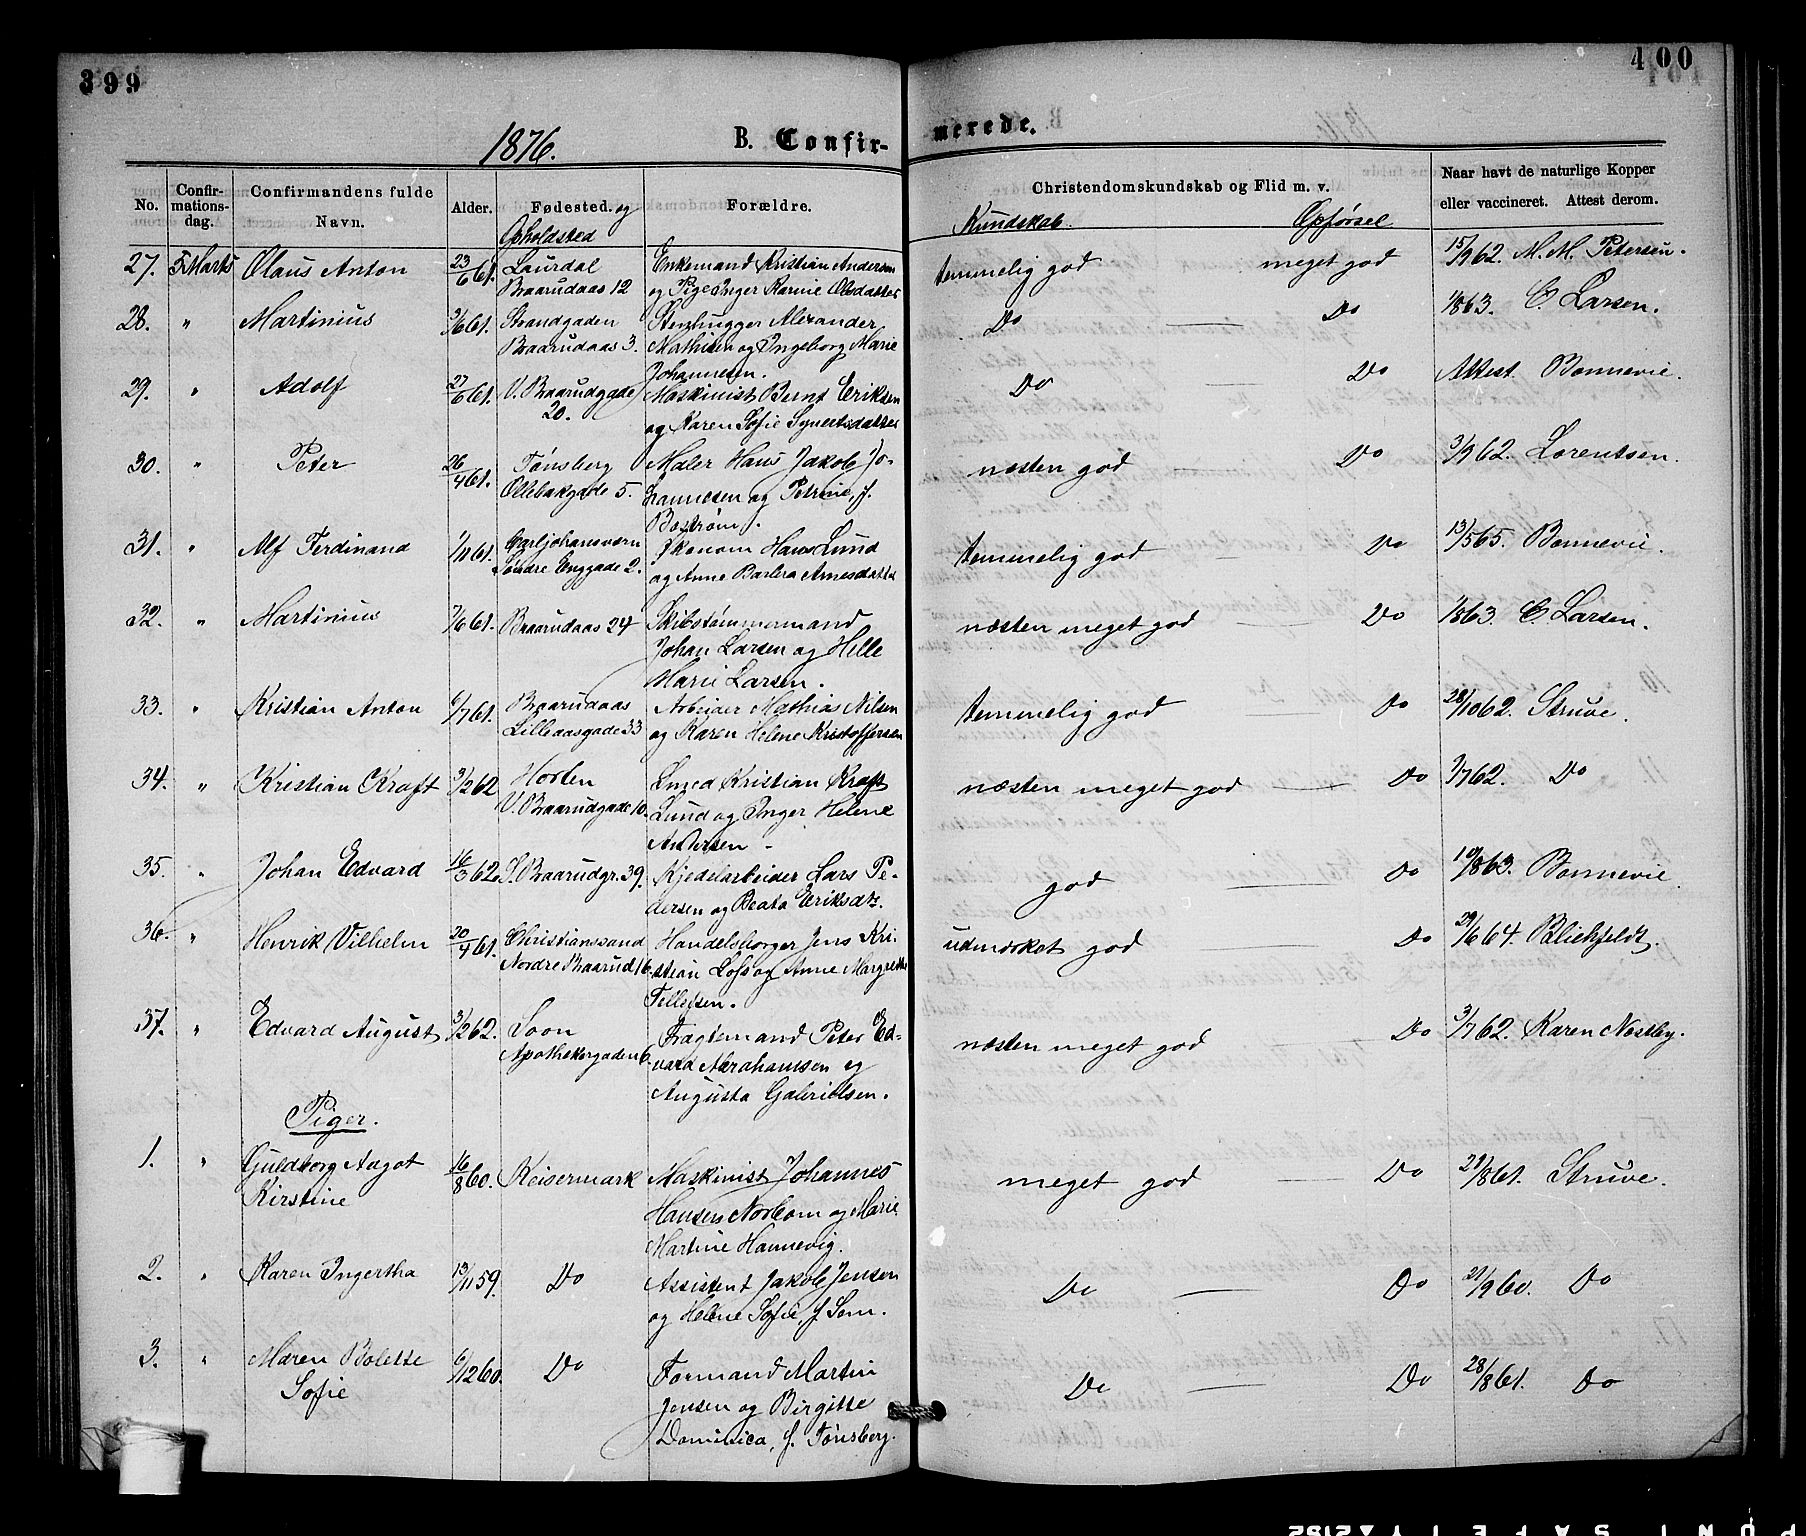 399
400
1876.
B. Confir-
merede.
No.
Confir-
mations-
dag.
Confirmandens fulde
Navn.
Alder.
Fødested. og
Opholdsted
Forældre.
Christendomskundskab og Flid m. v.
Kundskab.
Opførsel
Naar havt de naturlige Kopper
eller vaccineret. Attest derom.
27. 5 Marts Olaus Anton 23/6 61. Laurdal Enkemand Kristian Andersen temmelig god meget god 15/9 62. M. M. Petersen.
Baarudaas 12 og Pige Inger Karine Olsdatter
28. " Martinius 3/6 61. Strandgaden Stenhugger Alexander Do — Do 1/8 63. C. Larsen.
Baarudaas 3. Mathisen og Ingeborg Marie
Johannesen.
29. " Adolf 27/6 61. V. Baarudgade Maskinist Bernt Eriksen Do — Do Attest. Bonnevie.
20. og Karen Sofie Syvertsdatter
30. " Peter 26/4 61. Tønsberg Maler Hans Jakob Jo- næsten god — Do 3/9 62. Lorentsen.
Ollebakgade 5. hannesen og Petrine, f.
Bostrøm.
31. " Alf Ferdinand 1/11 61. Carljohansværn Økonom Hans Lund temmelig god — Do 13/5 65. Bonnevie.
Søndre Enggade 2. og Anne Barbera Arnesdatter
32. " Martinius 7/6 61. Baarudaas 24 Skibstømmermand næsten meget god — Do 1/8 63. C. Larsen.
Johan Larsen og Helle
Marie Larsen.
33. " Kristian Anton 6/7 61. Baarudaas Arbeider Mathias Nilsen temmelig god — Do 28/10 62. Struve.
Lilleaasgade 33 og Karen Helene Kristoffersen
34. " Kristian Kraft 3/2 62 Horten Smed Kristian Kraft næsten meget god — Do 7/7 62. Do
V. Baarudgade 10. Lund og Inger Helene
Andersen
35. " Johan Edvard 16/3 62. S. Baarudgr. 39. Kjedelarbeider Lars Pe- god — Do 19/8 63. Bonnevie.
dersen og Beata Eriksdtr.
36. " Henrik Vilhelm 20/4 61. Christianssand Handelsborger Jens Kri- udmærket god Do 29/6 64. Blichfeldt.
Nordre Baarud 16. stian Lohs og Anne Margrethe
Tellefsen.
37. " Edvard August 3/2 62. Soon Fragtemand Peter Ed- næsten meget god — Do 3/7 62. Karen Næstby.
Apothekergaden 6. vard Abrahamsen og
Augusta Gabrielsen.
Piger.
1. " Guldborg Aagot 16/8 60. Keisermark Maskinist Johannes meget god — Do 21/8 61. Struve.
Kirstine Hansen Norbom og Marie
Martine Hannevig.
2. " Karen Ingertha 13/11 59. Do Assistent Jakob Jensen Do — Do 21/9 60. Do
og Helene Sofie, f. Sem.
3. " Maren Bolette 6/12 60. Do Formand Martin Do — Do 28/8 61. Do
Sofie Jensen og Birgitte
Dominica, f. Tønsberg.